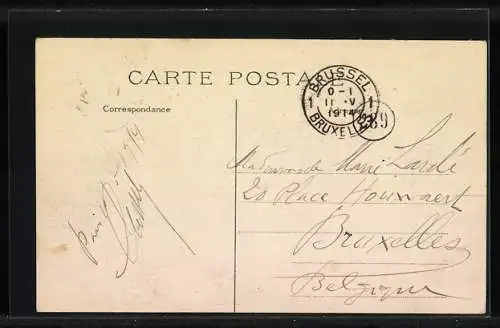 CARTE POSTALE
Correspondance
BRUSSEL
1 0-1 1
11 V
1914
BRUXELLES
89
Mademoiselle Marie
20 Place Houwaert
Bruxelles
Belgique
1914